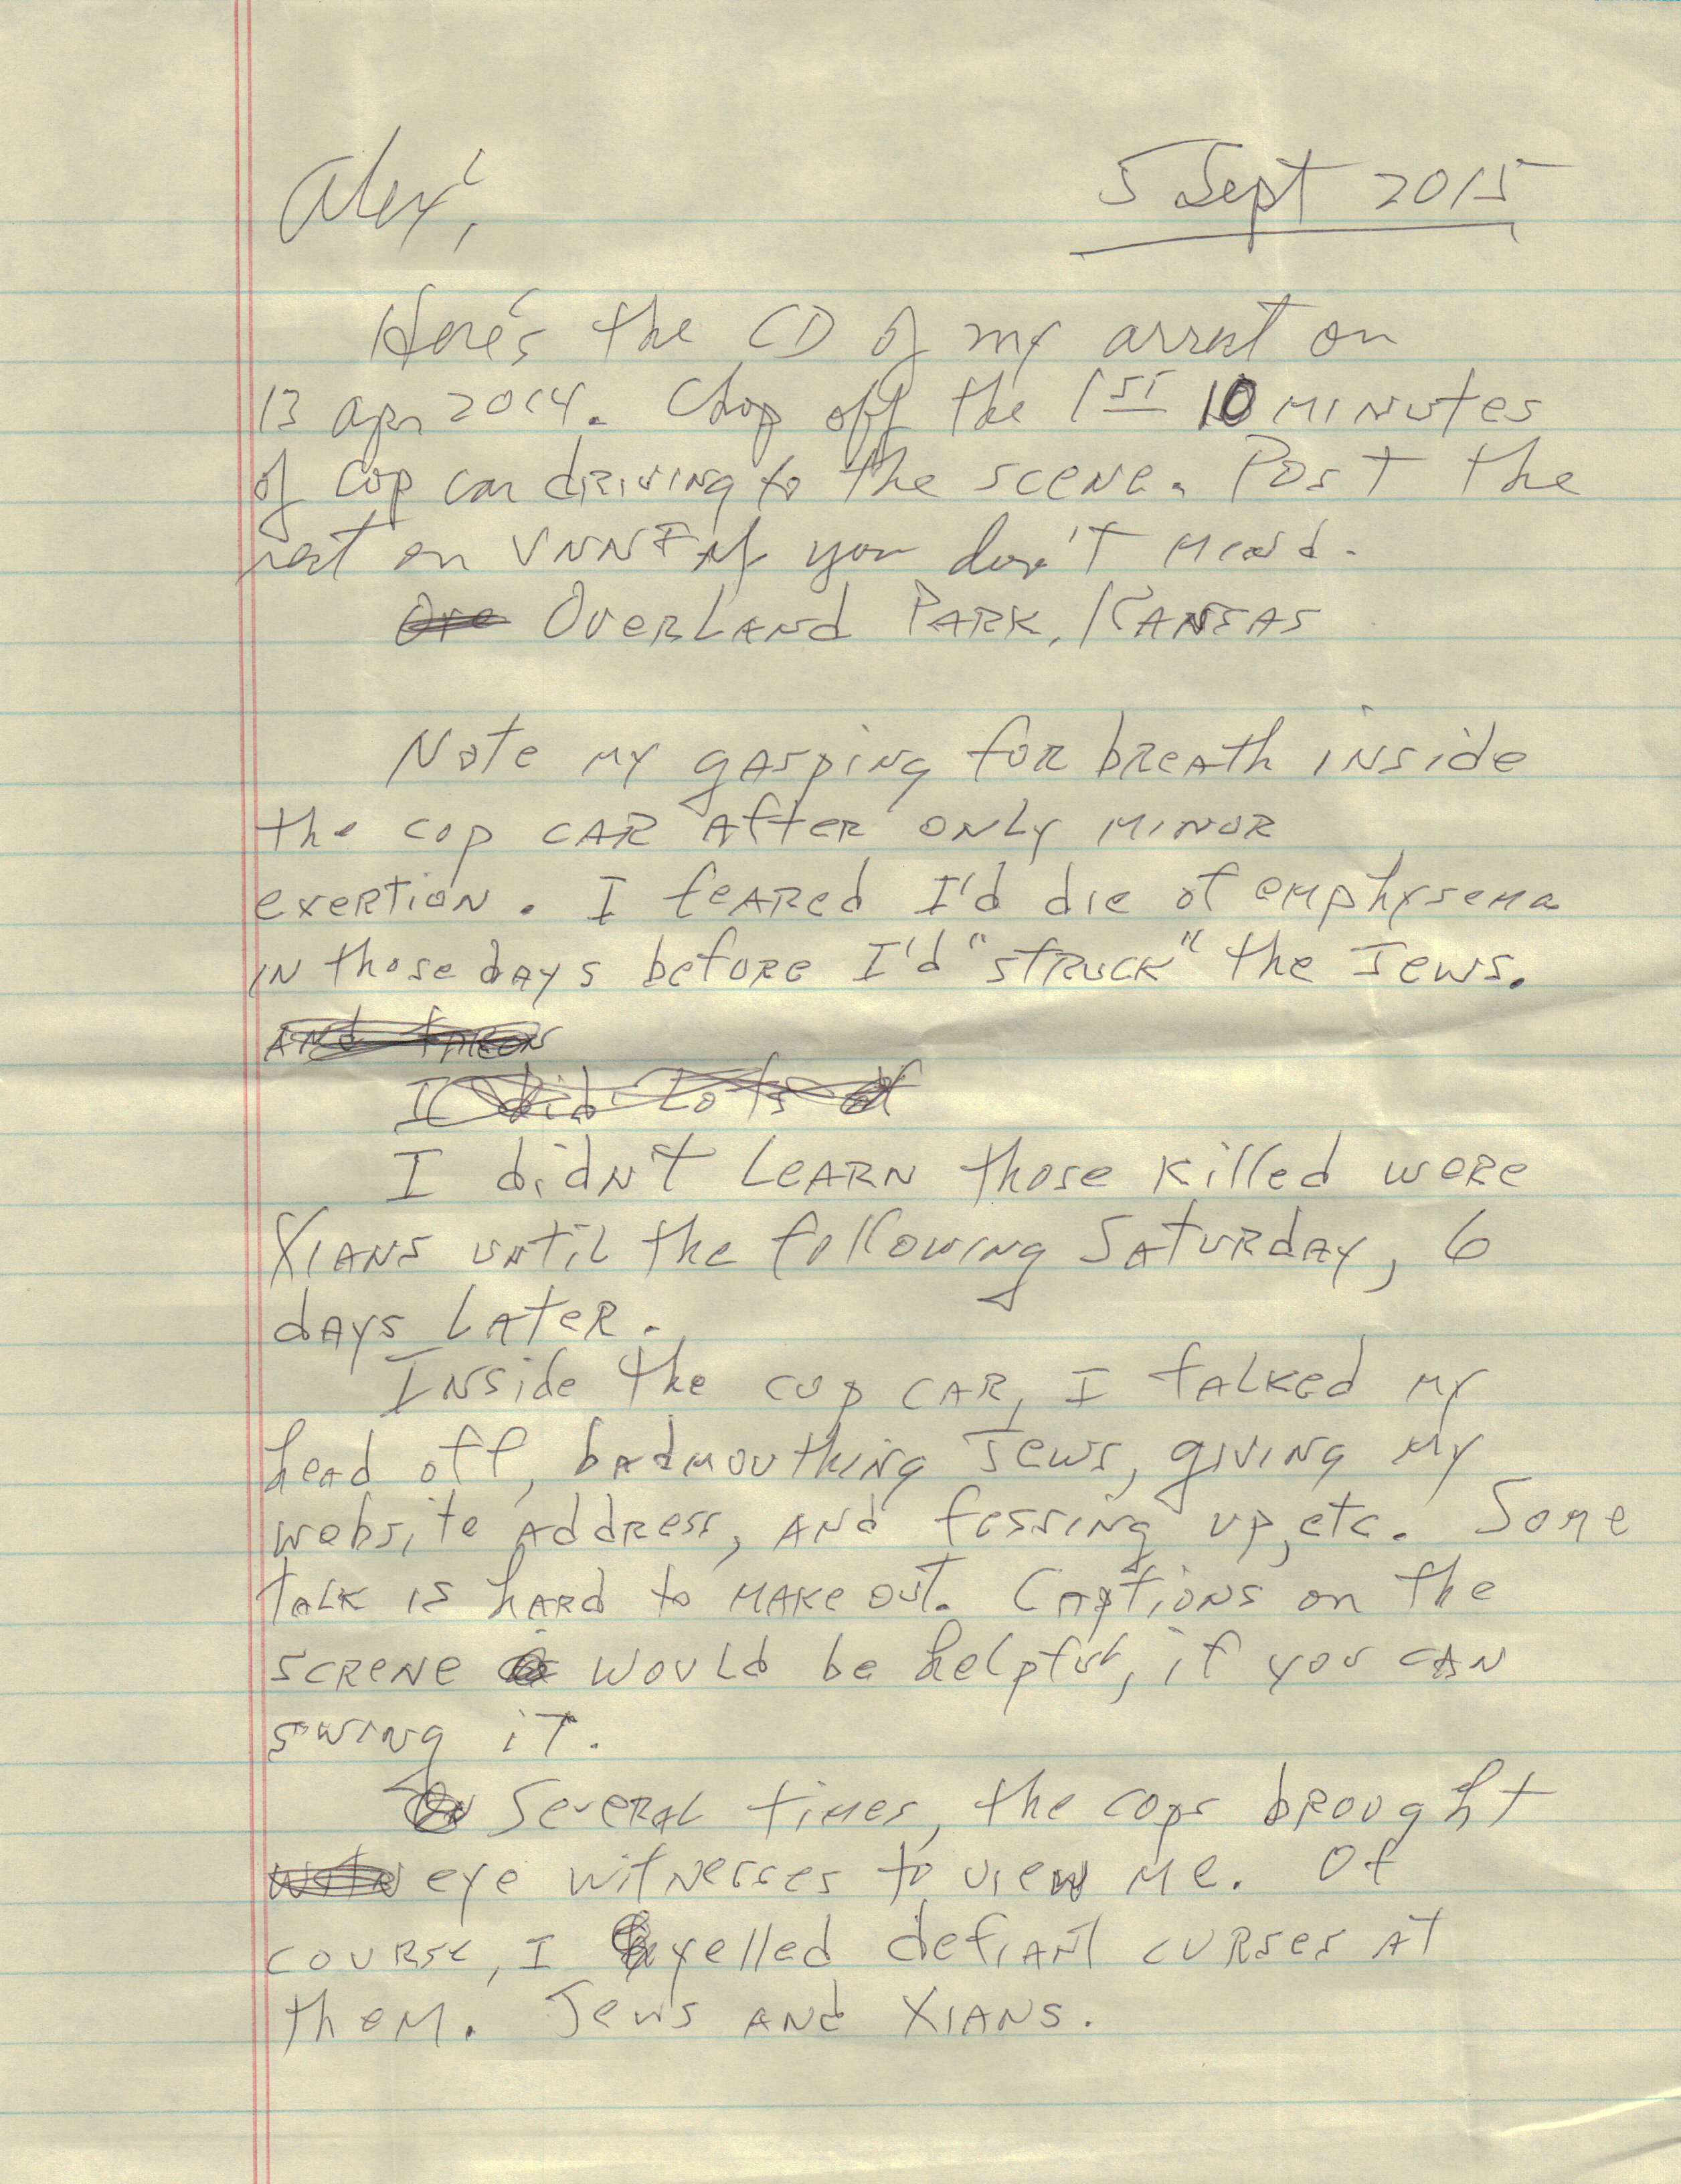 Alex, 5 Sept 2015
Here's the CD of my arrest on
13 Apr 2014. Chop off the 1st 10 minutes
of cop car driving to the scene. Post the
rest on VNNF if you don't mind.
Overland Park, Kansas
Note my gasping for breath inside
the cop car after only minor
exertion. I feared I'd die of emphysema
in those days before I'd "struck" the Jews.
I didn't learn those killed were
Xians until the following Saturday, 6
days later.
Inside the cop car, I talked my
head off, badmouthing Jews, giving my
website address, and fessing up, etc. Some
talk is hard to make out. Captions on the
screne would be helpful, if you can
swing it.
Several times, the cops brought
eye witnesses to view me. Of
course, I yelled defiant curses at
them. Jews and Xians.